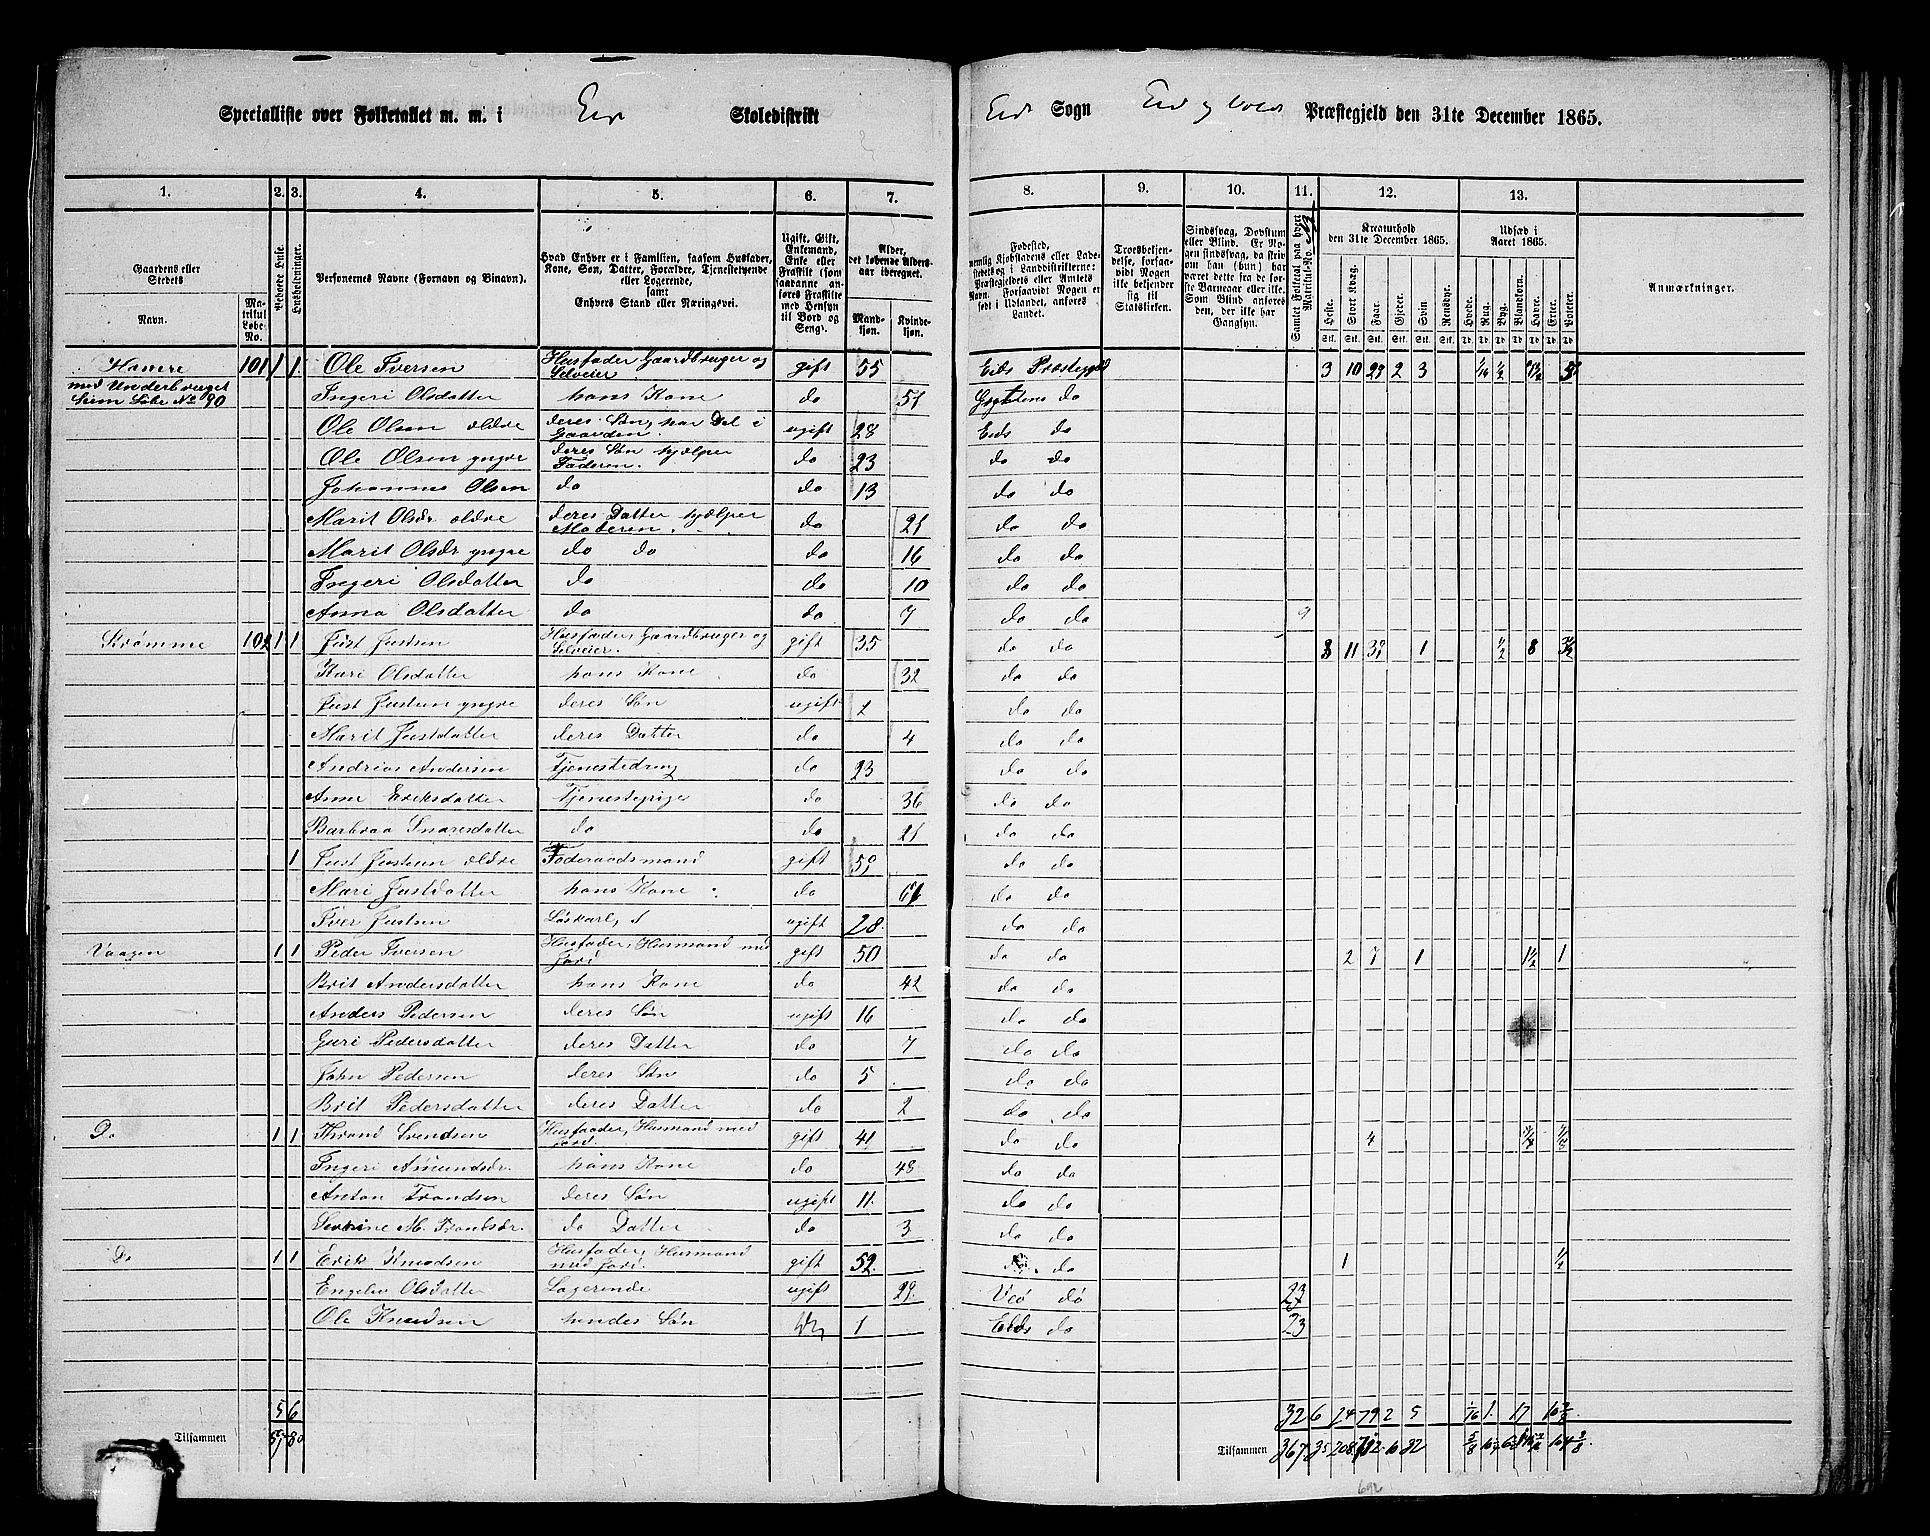 Specialliste over Folketallet m. m. i Eid Skoledistrikt Eid Sogn Eid og Præstegjeld den 31te December 1865.
1. 2. 3. 4. 5. 6. 7. 8. 9. 10. 11. 12. 13.
Gaardens eller Stedets Navn.
Matrikul Løbe-No.
Beboede Huse.
Husholdninger.
Personernes Navne (Fornavn og Binavn).
Hvad Enhver er i Familien, saasom Husfader, Kone, Søn, Datter, Forældre, Tjenestetyende eller Logerende, samt Enhvers Stand eller Næringsvei.
Ugift, Gift, Enkemand, Enke eller Fraskilt (saaledes som anføres Fraskilte med Hensyn til Bord og Seng).
Alder, det løbende Aldersaar iberegnet.
Mandkjøn. Kvindekjøn.
Troesbekjendelse, forsaavidt Nogen ikke bekjender sig til Statskirken.
Samlet Folketal paa hvert Matrikul-No.
Kreaturhold den 31te December 1865.
Heste. Stort Kvæg. Faar. Gjeder. Svin. Rensdyr.
Udsæd i Aaret 1865.
Hvede. Rug. Byg. Blandkorn. Havre. Erter. Poteter.
Anmærkninger.
Havere 101 1 1 Ole Iversen Husfader Gaardbruger og Selveier gift 55 Eids Præstegjeld 3 10 29 2 3
med Underbruget Seim Løbe No 90 Ingeri Olsdatter hans Kone do 51 do
Ole Olsen ældre deres Søn, har Del i Gaarden ugift 28 Eids do
Ole Olsen yngre deres Søn hjælper Faderen do 23 do do
Johannes Olsen do do 13 do do
Marit Olsdr ældre deres Datter hjælper Moderen do 21 do do
Marit Olsdr yngre do do do 16 do do
Ingeri Olsdatter do do 10 do do
Anna Olsdatter do do 7 do do 9
Strømme 102 1 1 Just Justsen Husfader, Gaardbruger og Selveier gift 35 do do 11 1 1/2 8
Kari Olsdatter hans Kone do 32 do do
Just Justsen yngre deres Søn ugift do do
Marit Justdatter deres Datter do 4 do do
Andrias Andersen Tjenestedreng do 23 do do
Anne Eriksdatter Tjenestepige do 36 do do
Barbraa Snaresdatter do do 21 do do
1 Just Justsen ældre Føderaadsmand gift 59 do do
Mari Justdatter hans Kone do 61 do do
Iver Justsen Løskarl ugift 28 do do
Vaagen 1 1 Peder Iversen Husfader, Husmand med Jord gift 50 do do 2 7 1 1 1/2 1
Brit Andersdatter hans Kone do 42 do do
Anders Pedersen deres Søn ugift 16 do do
Guri Pedersdatter deres Datter do 7 do do
John Pedersen deres Søn do 5 do do
Brit Pedersdatter deres Datter do 2 do do
Do 1 1 Thrond Svendsen Husfader, Husmand med Jord gift 41 do do 4
Ingeri Amundsdr. hans Kone do 48 do do
Anton Trondsen deres Søn ugift 11 do do
M. Trondsdr. do Datter do 3 do do
Do 1 1 Erik Knudsen Husfader, Husmand med Jord gift 52 do 1 1/2
Engebor Olsdatter Logerende ugift 29 Veø do 23
Ole Knudsen hendes Søn 1 Eids do 23
5 6 32 6 24 79 2 5 1/16 1 17 10
Tilsammen 57 80 Tilsammen 367 35 208